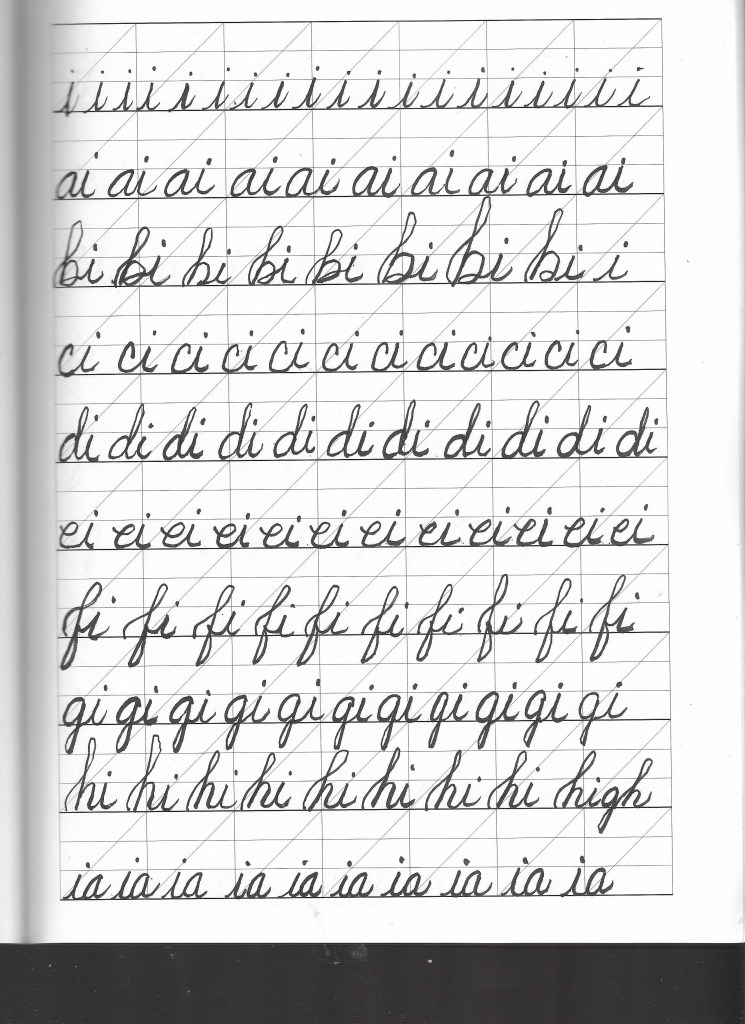 i i i i i i i i i i i i i i i i i i i
ai ai ai ai ai ai ai ai ai ai
bi bi bi bi bi bi bi bi i
ci ci ci ci ci ci ci ci ci ci ci ci
di di di di di di di di di di di
ei ei ei ei ei ei ei ei ei ei ei ei
fi fi fi fi fi fi fi fi fi fi
gi gi gi gi gi gi gi gi gi gi gi
hi hi hi hi hi hi hi hi high
ia ia ia ia ia ia ia ia ia ia